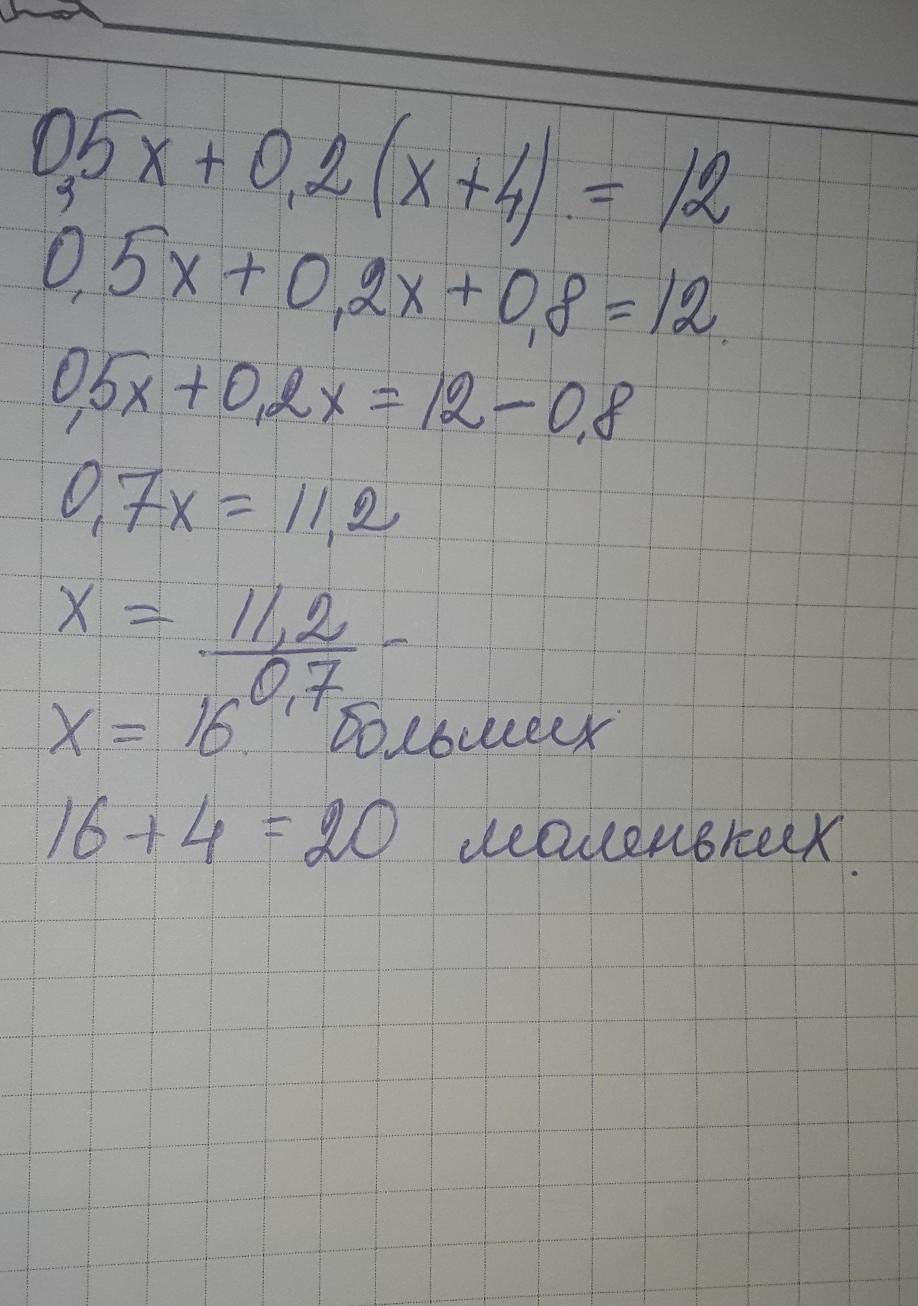 0,5x + 0,2(x+4) = 12
0,5x + 0,2x + 0,8 = 12
0,5x + 0,2x = 12 - 0,8
0,7x = 11,2
x = 11,2 / 0,7
x = 16 больших
16 + 4 = 20 маленьких.